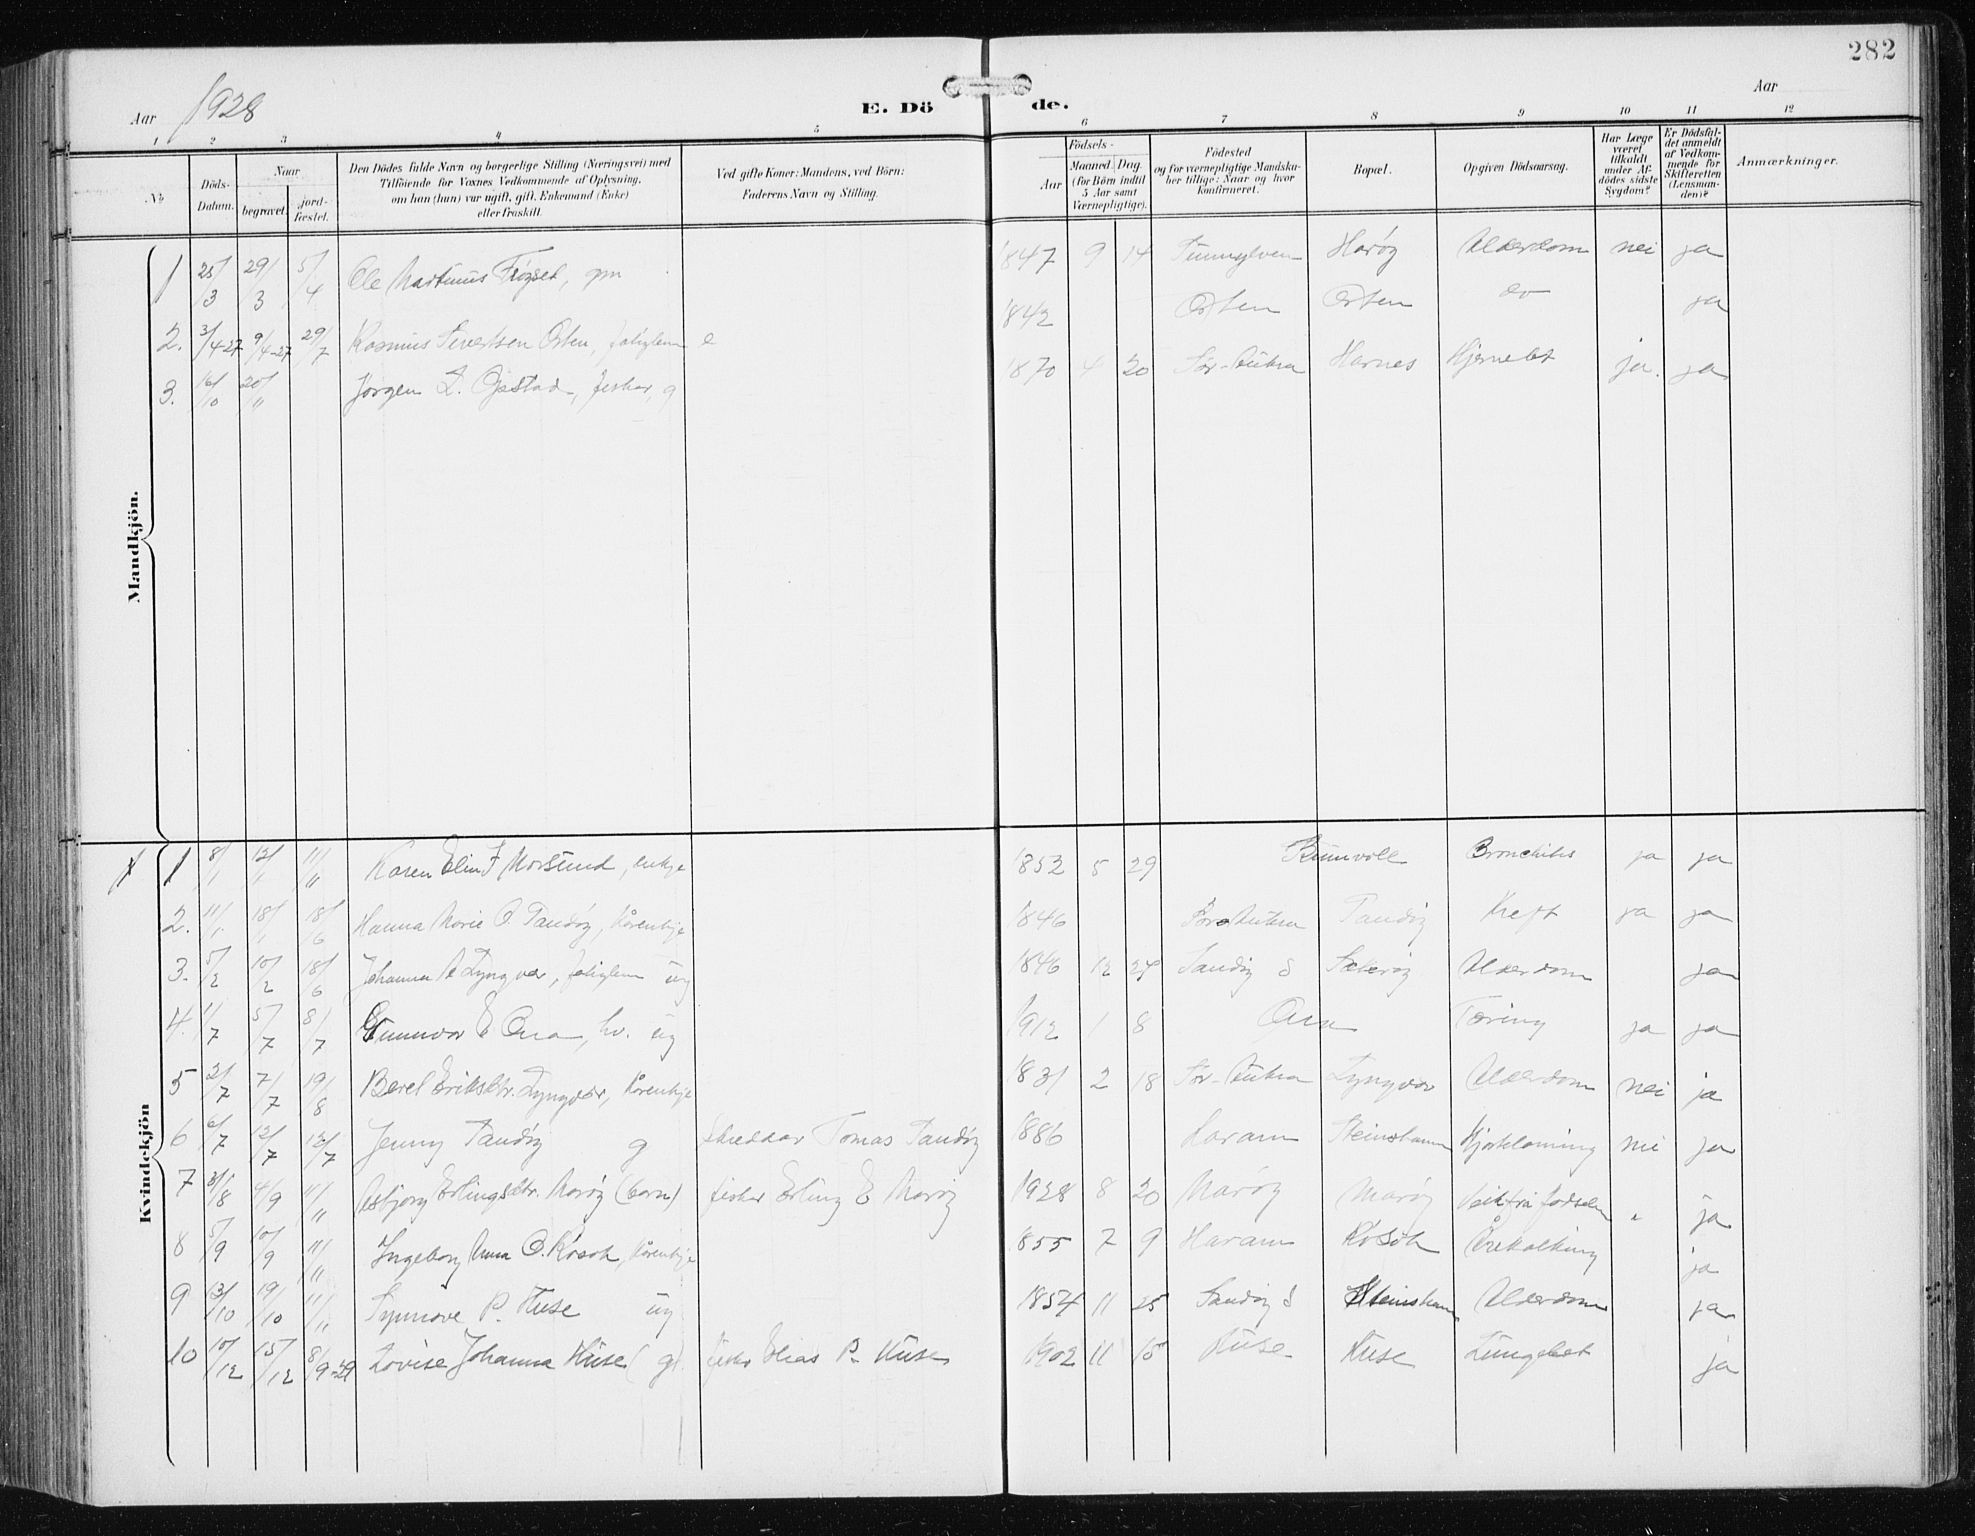 282
Aar 1928
E. Dö de.
Aar
1 2 3 4 5 6 7 8 9 10 11 12
No.
Döds-Datum.
Naar
begravet.
jordfæstet.
Den Dödes fulde Navn og borgerlige Stilling (Næringsvei) med
Tilföiende for Voxnes Vedkommende af Oplysning,
om han (hun) var ugift, gift, Enkemand (Enke)
eller fraskilt.
Ved gifte Koner: Mandens, ved Börn:
Faderens Navn og Stilling.
Födsels-
Aar
Maaned. Dag.
(for Börn indtil
5 Aar samt
Værnepligtige).
Födested
og for værnepligtige Mandska-
ber tillige: Naar og hvor
konfirmeret.
Bopæl.
Opgiven Dödsaarsag.
Har Læge
været
tilkaldt
under Af-
dödes sidste
Sygdom?
Er Dödsfal-
det anmeldt
af Vedkom-
mende for
Skifteretten
(Lensman-
den)?
Anmærkninger.
Mandkjön.
1 25/3 29/3 5/4 Ole Martinus Frøyset, 1847 9 14 Sunnylven Harøy Alderdom nei ja
2. 3/4-27 9/4-27 29/7 Rasmus Sivertsen Orten, e 1842 Orten Orten do ja
3. 16/10 20/" Jørgen L. Opstad, fiskar, g 1870 4 20 Sør-Aukra Harnes Hjerneblt ja. ja
Kvindekjön
1 8/1 12/1 11/" Karen Elin F Morsund, enkje 1852 5 29 Bronchitis ja ja
2. 11/1 18/1 18/6 Hanna Marie O. Sandøy, kårenkje 1846 Sør-Aukra Sandøy Kreft ja ja
3. 5/2 10/2 18/6 Johanna A Lyngvær, ug 1846 12 Sandøy S Alderdom ja
4. 1/7 5/7 8/7 Gunnvor E Ona, hv. ug 1912 1 8 Ona Tæring ja ja
5 2/7 7/7 19/8 Berel Eriksdtr. Lyngvær, kårenkje 1831 2 18 Sør-Aukra Lyngvær Alderdom nei ja
6 6/7 12/7 12/7 Jenny Sandøy g skreddar Tomas Sandøy 1886 Haram Steinshamn Hjertelaming nei ja
7 31/8 4/9 11/" Asbjørg Erlingsdtr. Harøy (barn) fiskar Erling E Harøy 1928 8 20 Harøy Harøy Veik frå fødselen " ja
8 5/9 10/9 11/11 Ingeborg Anna O. Røsok, kårenkje 1855 7 9 Haram Røsok Årekalking ja
9 13/10 19/10 11/11 Synnøve P. Huse ug 1854 11 25 Sandøy S Steinshamn Alderdom ja
10 10/12 15/12 8/9-29 Lovise Johanna Huse (g). fiskar Elias P. Huse 1902 11 15 Huse Huse Lungebet ja